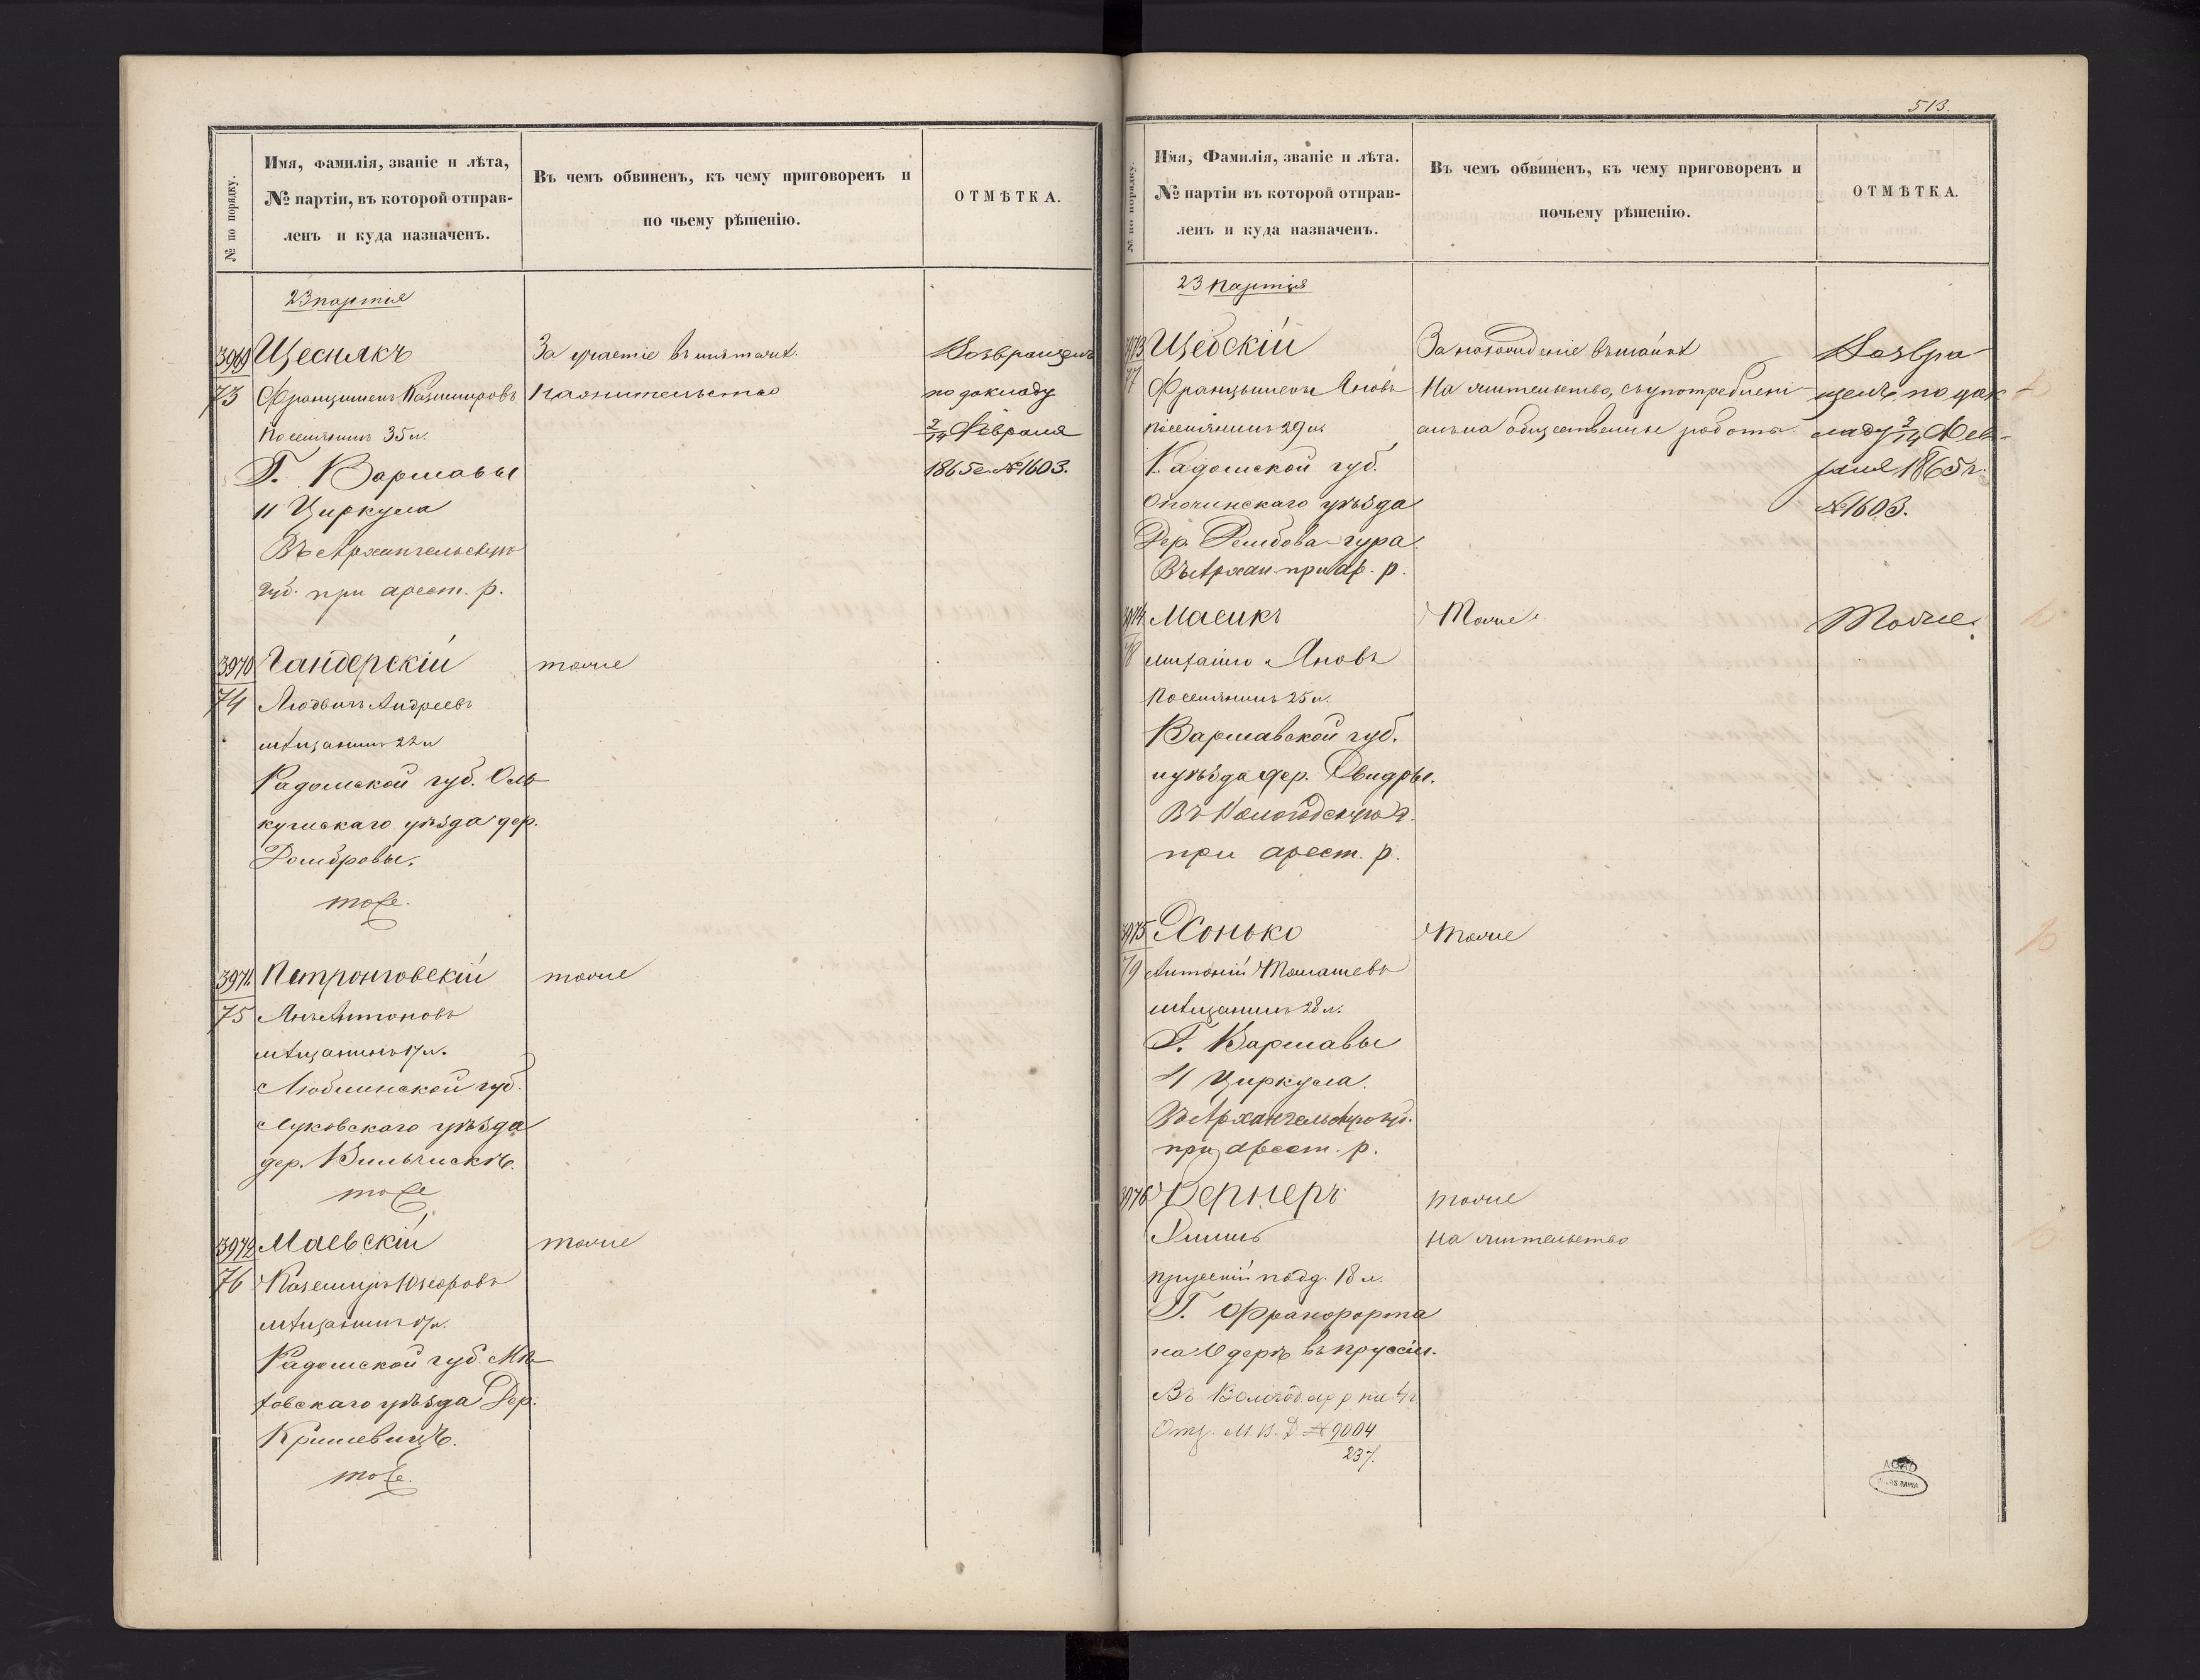 № по порядку.
Имя, Фамилія, званіе и лѣта,
№ партіи, въ которой отправ-
ленъ и куда назначенъ.
Въ чемъ обвиненъ, къ чему приговоренъ и
по чьему рѣшенію.
ОТМѢТКА.
23 партія
3969
73
Цеснякъ
Францишекъ Казимировъ
Поселянинъ 35 л.
Г. Варшавы
11 Циркула
Въ Архангельскую
губ. при арест. р.
За участіе въ мятеж.
На жительство
Возвращенъ
по докладу
2/14 Февраля
1865 г. №1603.
3970
74
Гандерскій
Людвигъ Андреевъ
мѣщанинъ 22 л
Радомской губ. Оль-
кушскаго уѣзда дер.
Домбровы.
тоже.
тоже
3971.
75
Петронговскій
Янъ Антоновъ
мѣщанинъ 17 л.
Люблинской губ.
Луковскаго уѣзда
дер. Вильчискъ.
тоже
тоже
3972
76
Маевскій
Казимиръ Юзефовъ
мѣщанинъ 17 л.
Радомской губ. Мѣ-
ховскаго уѣзда Дер.
тоже.
тоже
513.
№ по порядку.
Имя, Фамилія, званіе и лѣта.
№ партіи въ которой отправ-
ленъ и куда назначенъ.
Въ чемъ обвиненъ, къ чему приговоренъ и
почьему рѣшенію.
ОТМѢТКА.
23 партія
3973
77
Францишекъ Яновъ
поселянинъ 29 л.
Радомской губ.
Опочинскаго уѣзда
Дер. гура
Въ Архан при ар. р.
За нахожденіе въ шайкѣ
На жительство, съ употреблені-
емъ на общественные работы
Возвра-
щенъ по док
ладу 2/14 Фев-
раля 1865 г.
№1603.
3974
78
Масикъ
Михайло Яновъ
Поселянинъ 25 л.
Варшавской губ.
и уѣзда дер. Свидры.
Въ Вологодскую г.
при арест. р.
Тоже.
Тоже.
3975
79
Хонько
Антоній Томашевъ
мѣщанинъ 28 л.
Г. Варшавы
4 Циркула.
Въ Архангельскую губ.
при арест. р.
Тоже
3976
Вернеръ
прусскій подд. 18 л.
Г. Франкфорта
на Одерѣ въ Пруссіи.
Въ Вологод. ар р на 4 г.
М. В. Д №9004
237.
тоже
На жительство
AGAD
WARSZAWA